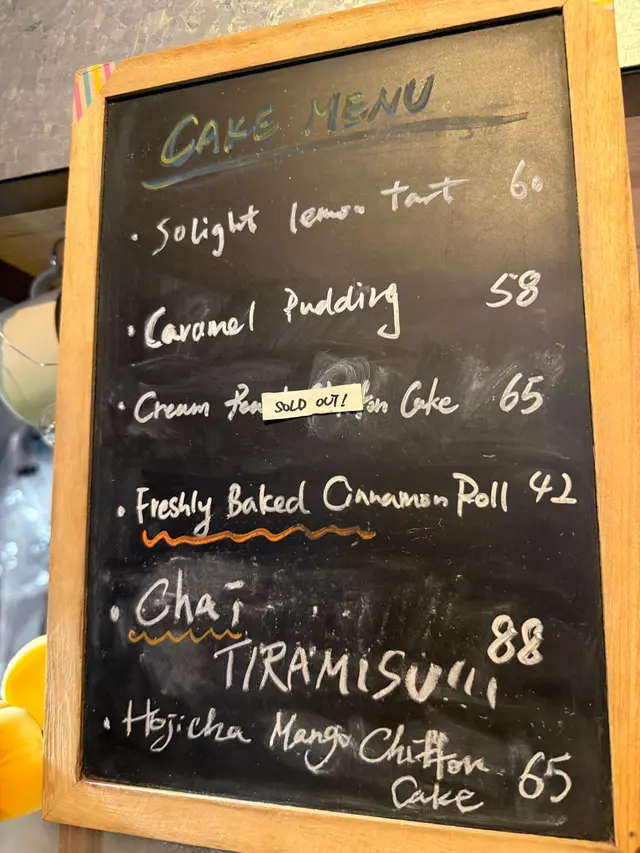 CAKE MENU
• Solight lemon tart 60
• Caramel Pudding 58
• Cream SOLD OUT! Cake 65
• Freshly Baked Cinnamon Roll 42
• Chai
TIRAMISU!!! 88
• Hojicha Mango Chiffon
Cake 65